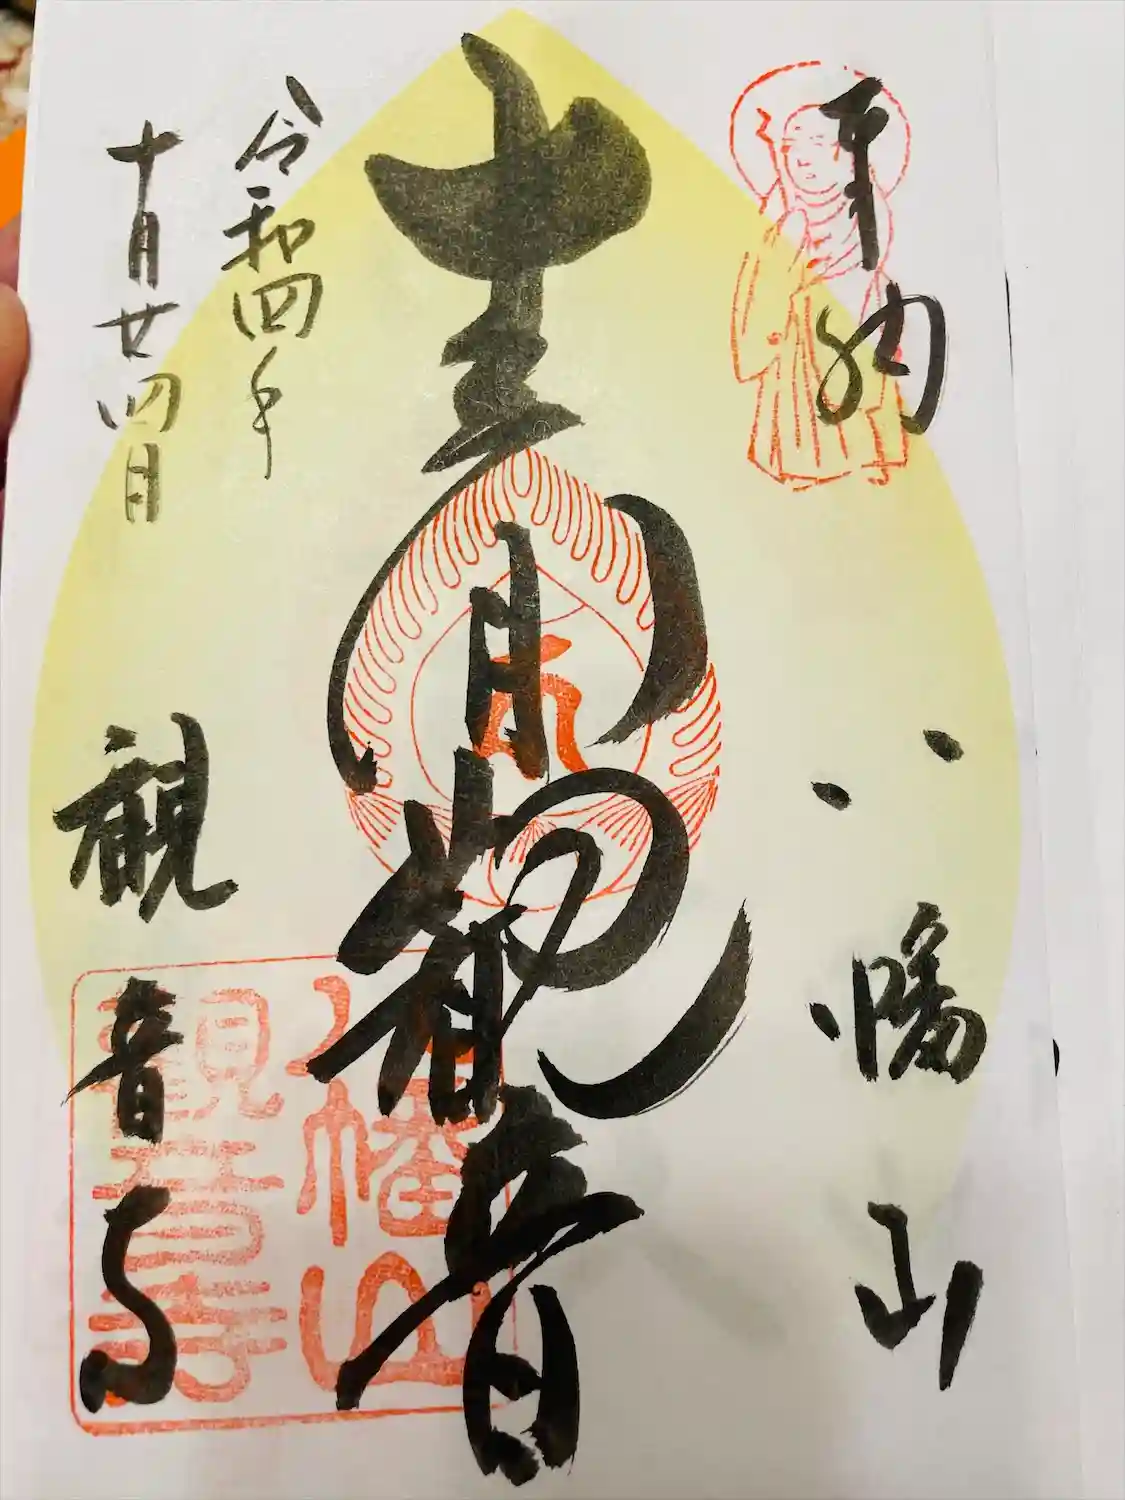 奉納
八幡山
観音
令和四年
十月廿四日
観音寺
八幡山
觀音寺